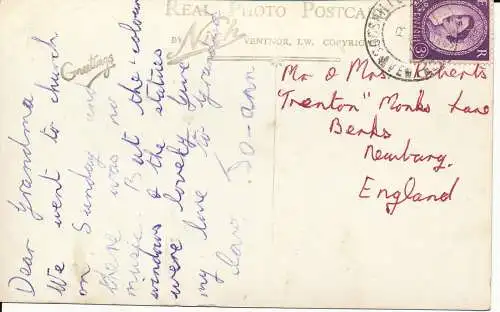 REAL PHOTO POSTCARD
BY Nigh VENTNOR, I.W. COPYRIGHT
Greetings
Dear Grandma
We went to church
on Sunday and
there was no
music. But the colour
windows & the statues
were lovely. Give
my love to Grandma
love Jo-ann
Mr & Mrs. Roberts
"Trenton" Monks Lane
Berks
Newbury.
England
E R
3